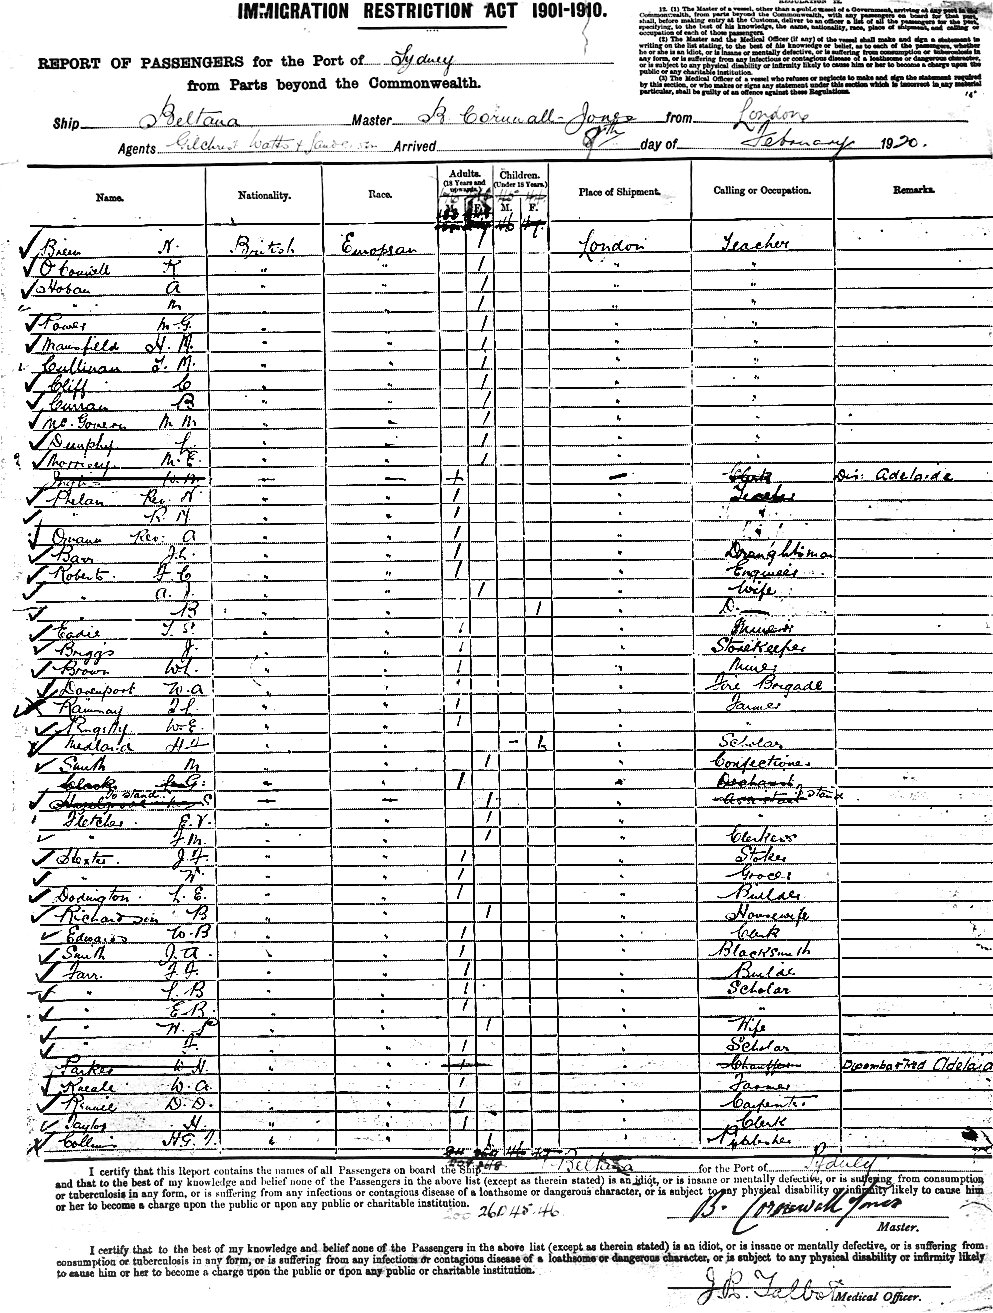 IMMIGRATION RESTRICTION ACT 1901-1910.
12. (1) The Master of a vessel, other than a public vessel of a Government, arriving at any port in the
Commonwealth, from parts beyond the Commonwealth, with any passengers on board for that port,
shall, before making entry at the Customs, deliver a list of all the passengers for the port,
specifying, to the best of his knowledge, the name, nationality, race, place of shipment, and calling or
occupation of each of those passengers.
(2) The Master and the Medical Officer (if any) of the vessel shall make and sign a statement in
writing on the list stating, to the best of his knowledge or belief, as to each of the passengers, whether
he or she is an idiot, or is insane or mentally defective, or is suffering from consumption or tuberculosis in any
form, or is suffering from any infectious or contagious disease of a loathsome or dangerous character,
or is subject to any physical disability or infirmity likely to cause him or her to become a charge upon the
public or any public or charitable institution.
(3) The Medical Officer of a vessel who refuses or neglects to make and sign the statement required
by this section, or who makes or signs any statement under this section which is incorrect in any material
particular, shall be guilty of an offence against these Regulations.
REPORT OF PASSENGERS for the Port of Sydney
from Parts beyond the Commonwealth.
Ship Beltana Master B Cornwall-Jones from London
Agents Gilchrist Watts & Sanderson Arrived 8th day of February 1920.
Name. Nationality. Race. Adults. (15 Years and upwards.) M. F. Children. (Under 15 Years.) M. F. Place of Shipment. Calling or Occupation. Remarks.
Breen N. British European 1 London Teacher
O'Connell K " " 1 " "
Hoban A " " 1 " "
" M " " 1 " "
Power M.G. " " 1 " "
Mansfield H. M. " " 1 " "
Cullinan T. M. " " 1 " "
Cliff C " " 1 " "
Curran B " " 1 " "
McGovern M M " " 1 " "
Dunphy L. " " 1 " "
Morrissy M. E. " " 1 " "
Clerk Dis: Adelaide
Phelan Rev. N " " 1 " Teacher
" R. M " " 1 " "
Rev. A " " 1 " "
Barr J.L. " " 1 " Draughtsman
Roberts. F C " " 1 " Engineer
" A. J. " " 1 " Wife
" B " " 1 " D.
Eadie T. S. " " 1 " Miner
Briggs J. " " 1 " Storekeeper
Brown W.L. " " 1 " Miner
Davenport W. A " " 1 " Fire Brigade
Ramsay T L. " " 1 " Farmer
W. E. " " 1 " "
Medland H " " - 1 " Scholar
Smith M " " 1 " Confectioner
G. " " 1 "
To stand S 1 stand
Fletcher E. V. " " 1 "
" F. M. " " 1 "
J. " " 1 " Stoker
" W. " " 1 " Grocer
Dodington L. E. " " 1 " Builder
Richardson B " " 1 " Housewife
Edwards W. B " " 1 " Clerk
Smith J. A. " " 1 " Blacksmith
Farr. F. J. " " 1 " Builder
" L. B " " 1 " Scholar
" E. B. " " 1 " "
" W. " " 1 " Wife
" " " 1 " Scholar
Parkes W. H. " " 1 " Chauffeur Disembarked Adelaide
Kneale W. A. " " 1 " Farmer
Rennie D. D. " " 1 " Carpenter
Taylor H. " " 1 " Clerk
Collins H G. " " 1 " Publisher
I certify that this Report contains the names of all Passengers on board the Ship Beltana for the Port of Sydney
and that to the best of my knowledge and belief none of the Passengers in the above list (except as therein stated) is an idiot, or is insane or mentally defective, or is suffering from consumption
or tuberculosis in any form, or is suffering from any infectious or contagious disease of a loathsome or dangerous character, or is subject to any physical disability or infirmity likely to cause him
or her to become a charge upon the public or upon any public or charitable institution.
261. 45. 46.
B. Cornwall Jones
Master.
I certify that to the best of my knowledge and belief none of the Passengers in the above list (except as therein stated) is an idiot, or is insane or mentally defective, or is suffering from
consumption or tuberculosis in any form, or is suffering from any infectious or contagious disease of a loathsome or dangerous character, or is subject to any physical disability or infirmity likely
to cause him or her to become a charge upon the public or upon any public or charitable institution.
J. R. Talbot Medical Officer.